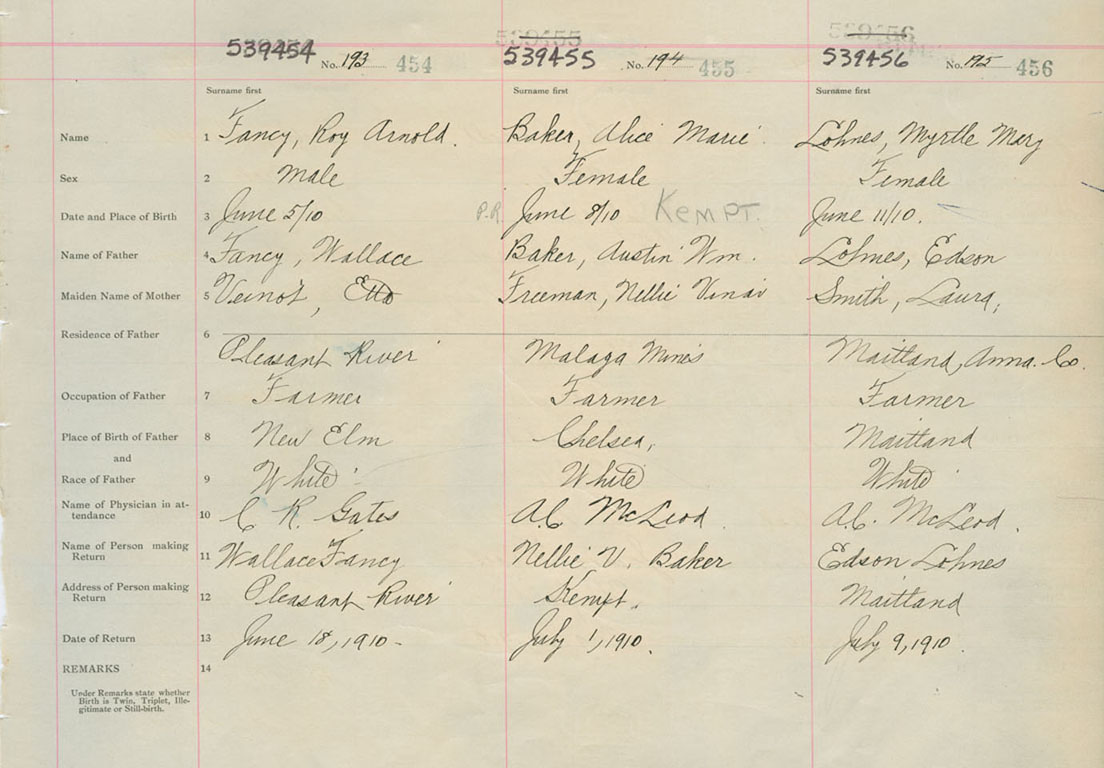 539454 539455 539456
539455 539456
No. 193 454 No. 194 455 No. 195 456
Surname first Surname first Surname first
Name 1 Fancy, Roy Arnold. Baker, Alice Marie Lohnes, Myrtle Mary
Sex 2 Male Female Female
Date and Place of Birth 3 June 5/10 P.R. June 8/10 KEMPT. June 11/10.
Name of Father 4 Fancy, Wallace Baker, Austin Wm. Lohnes, Edson
Maiden Name of Mother 5 Veinot, Etta Freeman, Nellie Smith, Laura,
Residence of Father 6
Pleasant River Malaga Mines Maitland, Anna. Co.
Occupation of Father 7 Farmer Farmer Farmer
Place of Birth of Father 8 New Elm Chelsea, Maitland
and
Race of Father 9 White White White
Name of Physician in at-
tendance 10 C R. Gates A.C. McLeod. A.C. McLeod.
Name of Person making
Return 11 Wallace Fancy Nellie V. Baker Edson Lohnes
Address of Person making
Return 12 Pleasant River Kempt. Maitland
Date of Return 13 June 18, 1910- July 1, 1910. July 9, 1910.
REMARKS 14
Under Remarks state whether
Birth is Twin, Triplet, Ille-
gitimate or Still-birth.